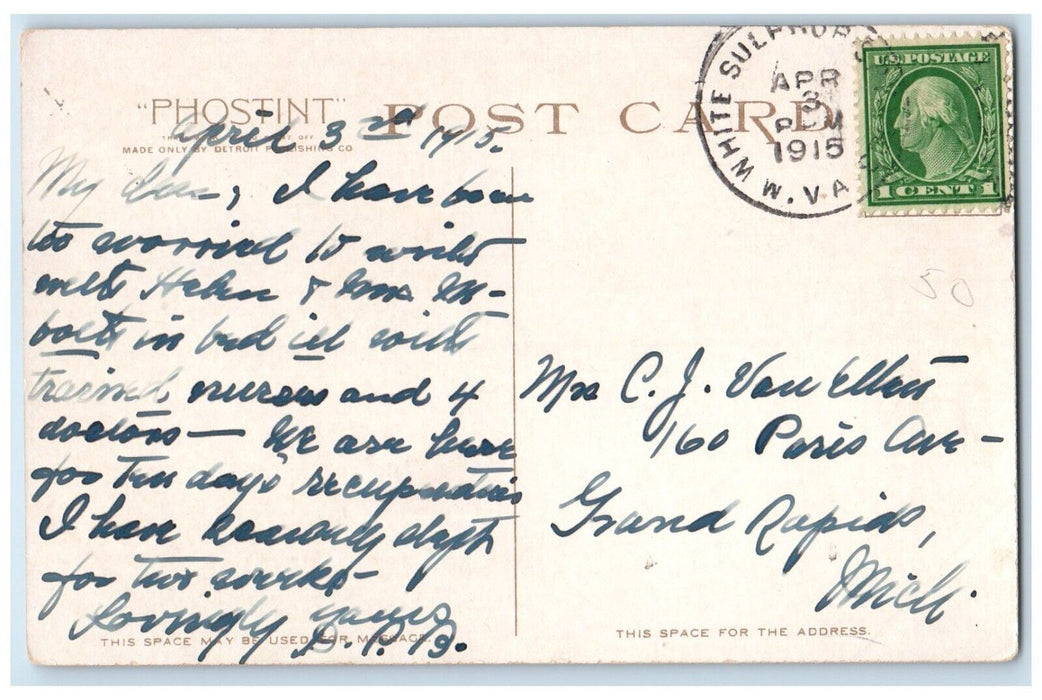 "PHOSTINT" POST CARD
MADE ONLY BY DETROIT PUBLISHING CO
WHITE SULPHUR
APR
3
P M
1915
W. VA
U.S. POSTAGE
1 CENT 1
April 3rd 1915.
My dear, I have been
too worried to write
with Helen & Mrs. M-
both in bed ill with
trained nurses and 4
doctors— We are here
for ten days recuperation
I have scarcely slept
for two weeks—
Lovingly yours
50
Mrs C. J. Van Etten
160 Paris Ave—
Grand Rapids,
Mich.
THIS SPACE MAY BE USED FOR MESSAGE.
THIS SPACE FOR THE ADDRESS.